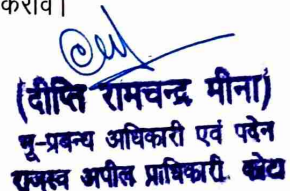 करावें।
(दीप्ति रामचन्द्र मीना)
भू-प्रबन्ध अधिकारी एवं पदेन
राजस्व अपील प्राधिकारी कोटा